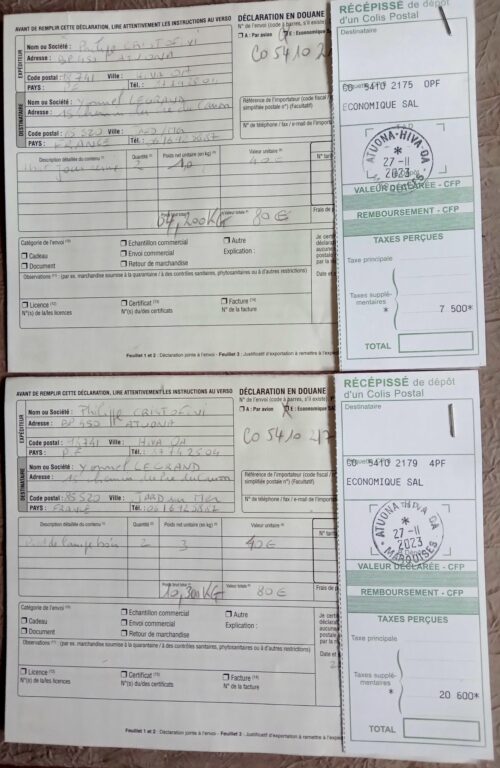 AVANT DE REMPLIR CETTE DÉCLARATION, LIRE ATTENTIVEMENT LES INSTRUCTIONS AU VERSO
DÉCLARATION EN DOUANE
N° de l'envoi (code à barres, s'il existe)
A : Par avion
E : Economique
CO 5410 21
EXPÉDITEUR
Nom ou Société : Philippe CRISTOFINI
Adresse : BP 450 ATUONA
Code postal : 98741 Ville : HIVA OA
PAYS : Tél. :
DESTINATAIRE
Nom ou Société : Yonnel LEGRAND
Adresse : 15
Code postal : 85520 Ville :
PAYS : FRANCE Tél. :
Référence de l'importateur (code fiscal /
simplifiée postale n°) (Facultatif)
N° de téléphone / fax / e-mail de l'import
Description détaillée du contenu
Quantité
Poids net unitaire (en kg)
Valeur unitaire
N° tarif
2 40€
04,200KG
Valeur totale
80€
Frais de
Catégorie de l'envoi
Cadeau
Document
Echantillon commercial
Envoi commercial
Retour de marchandise
Autre
Explication :
Je certi
Observations (11) : (par ex. marchandise soumise à la quarantaine / à des contrôles sanitaires, phytosanitaires ou à d'autres restrictions)
Licence (12)
N°(s) de la/les licences
Certificat (13)
N°(s) du/des certificats
Facture (14)
N° de la facture
Feuillet 1 et 2 : Déclaration jointe à l'envoi - Feuillet 3 : Justificatif d'exportation à remettre à l'expédit
RÉCÉPISSÉ de dépôt
d'un Colis Postal
Destinataire
CO 5410 2175 0PF
ECONOMIQUE SAL
ATUONA-HIVA-OA
27 -11
2023
MARQUISES
VALEUR DÉCLARÉE - CFP
REMBOURSEMENT - CFP
TAXES PERÇUES
Taxe principale
Taxes supplé-
mentaires
* 7 500*
TOTAL
AVANT DE REMPLIR CETTE DÉCLARATION, LIRE ATTENTIVEMENT LES INSTRUCTIONS AU VERSO
DÉCLARATION EN DOUANE
N° de l'envoi (code à barres, s'il existe)
A : Par avion
E : Economique
CO 5410 217
EXPÉDITEUR
Nom ou Société : Philippe CRISTOFINI
Adresse : BP 550 ATUONA
Code postal : 98741 Ville : HIVA OA
PAYS : P.F Tél. :
DESTINATAIRE
Nom ou Société : Yonnel LEGRAND
Adresse : 15
Code postal : 85520 Ville : JARD sur Mer
PAYS : FRANCE Tél. :
Référence de l'importateur (code fiscal /
simplifiée postale n°) (Facultatif)
N° de téléphone / fax / e-mail de l'import
Description détaillée du contenu
Quantité
Poids net unitaire (en kg)
Valeur unitaire
N° tarif
2 3 40€
10,300KG
Valeur totale
80€
Frais de
Catégorie de l'envoi
Cadeau
Document
Echantillon commercial
Envoi commercial
Retour de marchandise
Autre
Explication :
Je certi
Observations (11) : (par ex. marchandise soumise à la quarantaine / à des contrôles sanitaires, phytosanitaires ou à d'autres restrictions)
Licence (12)
N°(s) de la/les licences
Certificat (13)
N°(s) du/des certificats
Facture (14)
N° de la facture
Feuillet 1 et 2 : Déclaration jointe à l'envoi - Feuillet 3 : Justificatif d'exportation à remettre à l'expédit
RÉCÉPISSÉ de dépôt
d'un Colis Postal
Destinataire
CO 5410 2179 4PF
ECONOMIQUE SAL
ATUONA-HIVA-OA
27 -11
2023
MARQUISES
VALEUR DÉCLARÉE - CFP
REMBOURSEMENT - CFP
TAXES PERÇUES
Taxe principale
Taxes supplé-
mentaires
* 20 600*
TOTAL